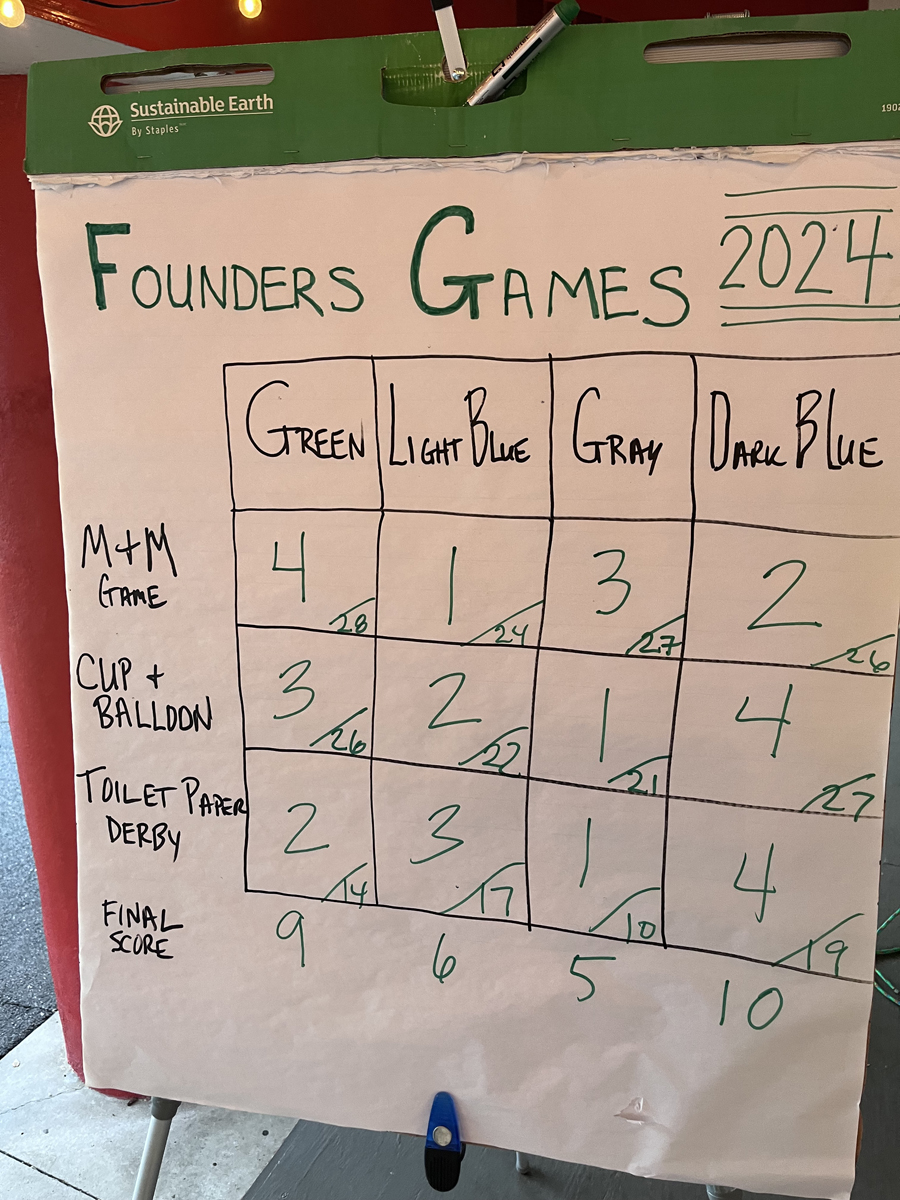 Sustainable Earth
By Staples
FOUNDERS GAMES 2024
GREEN LIGHT BLUE GRAY DARK BLUE
M+M
GAME
4 28 1 24 3 27 2 26
CUP +
BALLOON
3 26 2 22 1 21 4 27
TOILET PAPER
DERBY
2 14 3 17 1 10 4 19
FINAL
SCORE
9 6 5 10